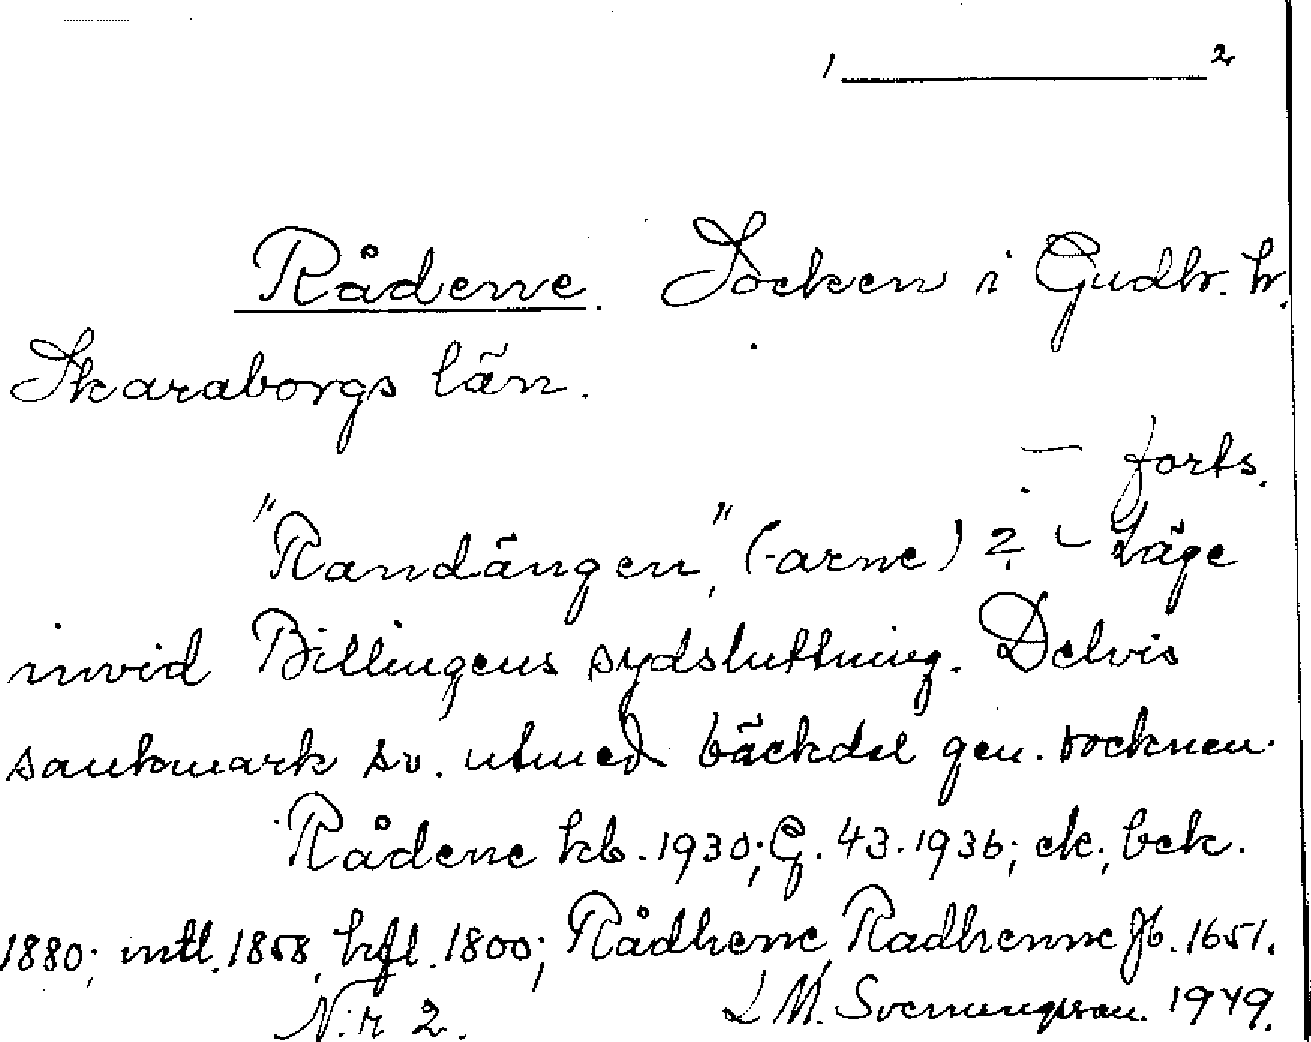 1 2
Rådene. Socken i Gudh. h.
Skaraborgs län.
– forts.
"Randängen," (-arne)? – Läge
invid Billingens sydsluttning. Delvis
sankmark sv. utmed bäckdal gen. socknen.
Rådene kb. 1930; G. 43. 1936; ek.; bek.
1880; mtl. 1858, hfl. 1800; Rådhene, Radhenne Jb. 1651.
N:r 2. L M. Svenungsson. 1949.